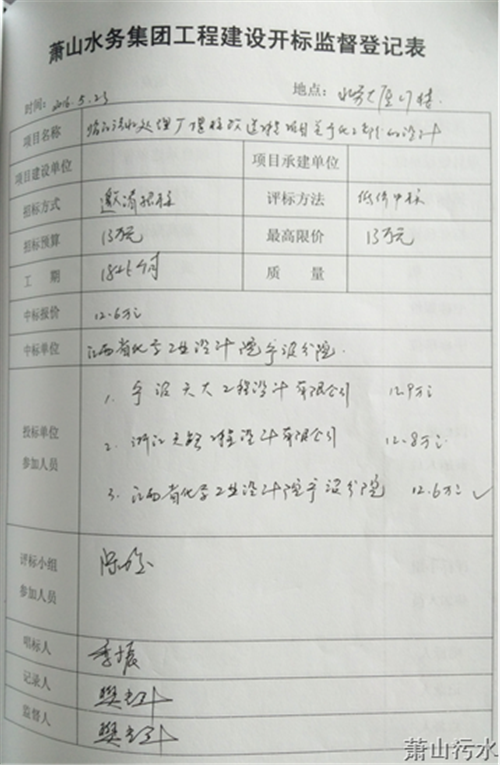 萧山水务集团工程建设开标监督登记表
时间: 2016.5.23 地点:
项目名称 临江污水处理厂提标改造工程项目
项目建设单位 项目承建单位
招标方式 邀请招标 评标方法 低价中标
招标预算 13万元 最高限价 13万元
工 期 质 量
中标报价 12.6万元
中标单位 江西省化学工业设计院宁波分院
1. 宁波天大工程设计有限公司 12.9万元
投标单位
参加人员
2. 浙江天 工程设计有限公司 12.8万元
3. 江西省化学工业设计院宁波分院 12.6万元 ✓
评标小组
参加人员
唱标人 李振
记录人
监督人
萧山污水